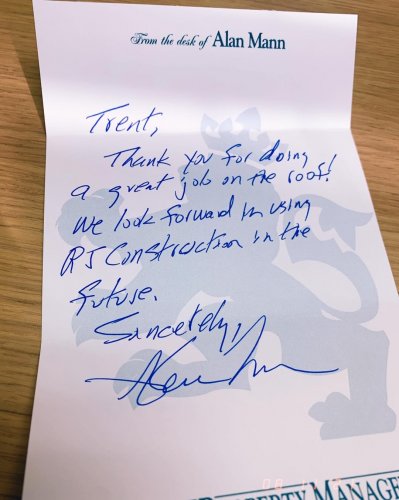 From the desk of Alan Mann
Trent,
Thank you for doing
a great job on the roof!
We look forward in using
RJ Construction in the
future.
Sincerely,
PROPERTY MANAGE